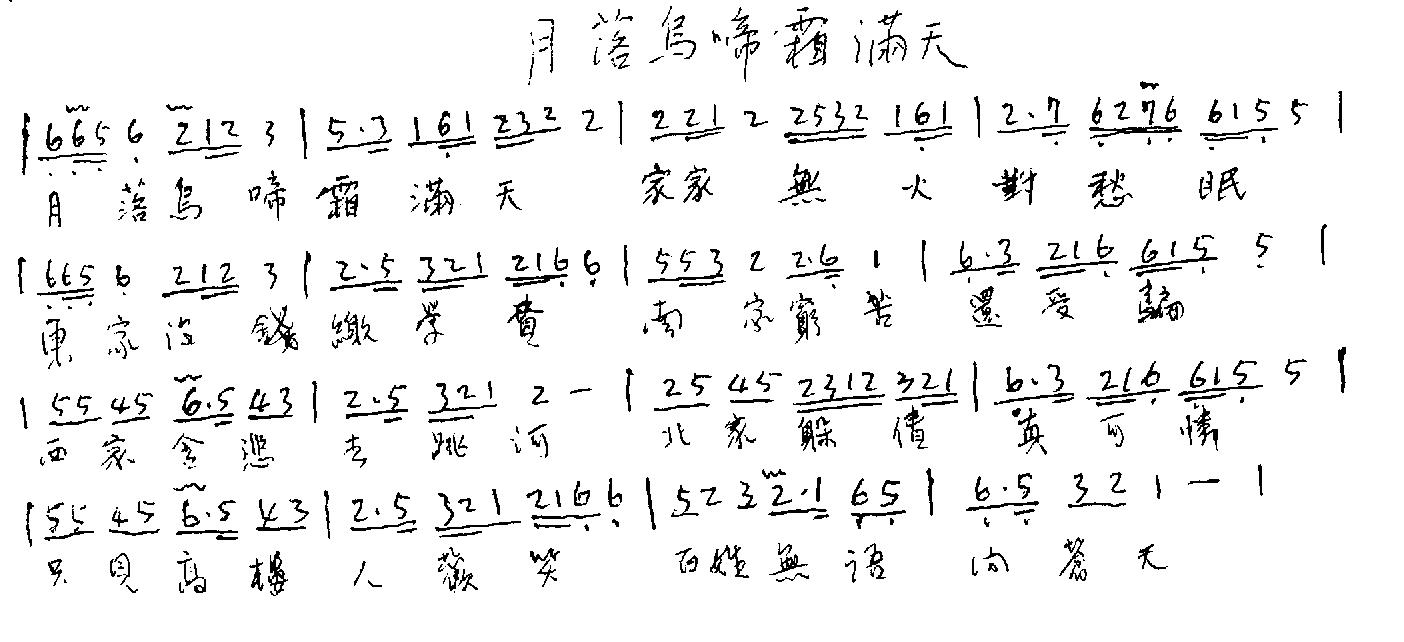 月落烏啼霜滿天
| 665 6 212 3 | 5.3 161 232 2 | 221 2 2532 161 | 2.7 6276 615 5 |
月落烏啼霜滿天 家家無火對愁眠
| 665 6 212 3 | 2.5 321 216 6 | 553 2 2.6 1 | 6.3 216 615 5 |
東家沒錢繳學費 南家窮苦還受騙
| 55 45 6.5 43 | 2.5 321 2 — | 25 45 2312 321 | 6.3 216 615 5 |
西家含悲去跳河 北家躲債真可憐
| 55 45 6.5 43 | 2.5 321 216 6 | 52 3 2.1 65 | 6.5 32 1 — |
只見高樓人歡笑 百姓無語向蒼天